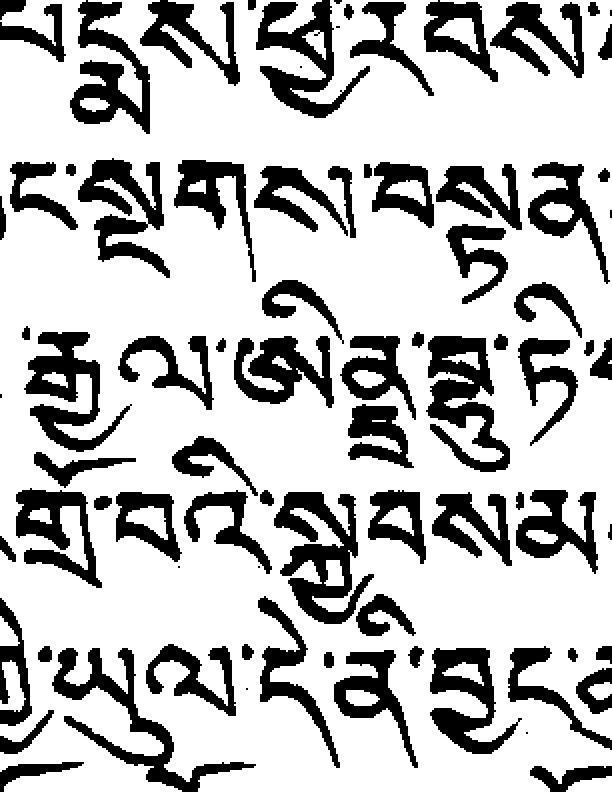 པདྨས་ཕྱ་རབས་
ང་སྔགས་བསྟན་
་རྒྱལ་ཨིནྡྲ་བྷུ་ཏི་
འགྲོ་བའི་སྐྱབས་མ
ཀྱི་ཡུལ་དེ་ནི་བྱང་